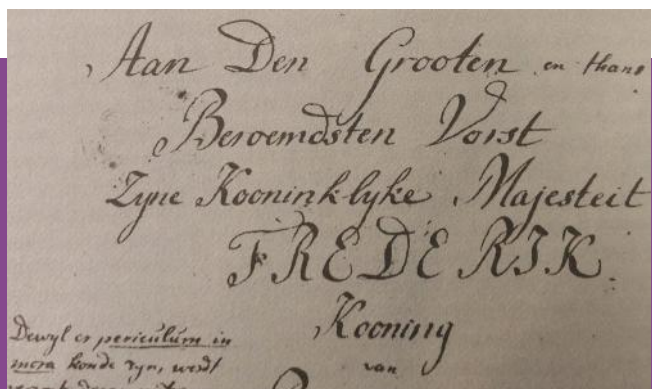 Aan Den Grooten en thans
Beroemdsten Vorst
Zyne Kooninklyke Majesteit
FREDERIK.
Kooning
van
Dewyl er periculum in
mora konde zyn, werdt